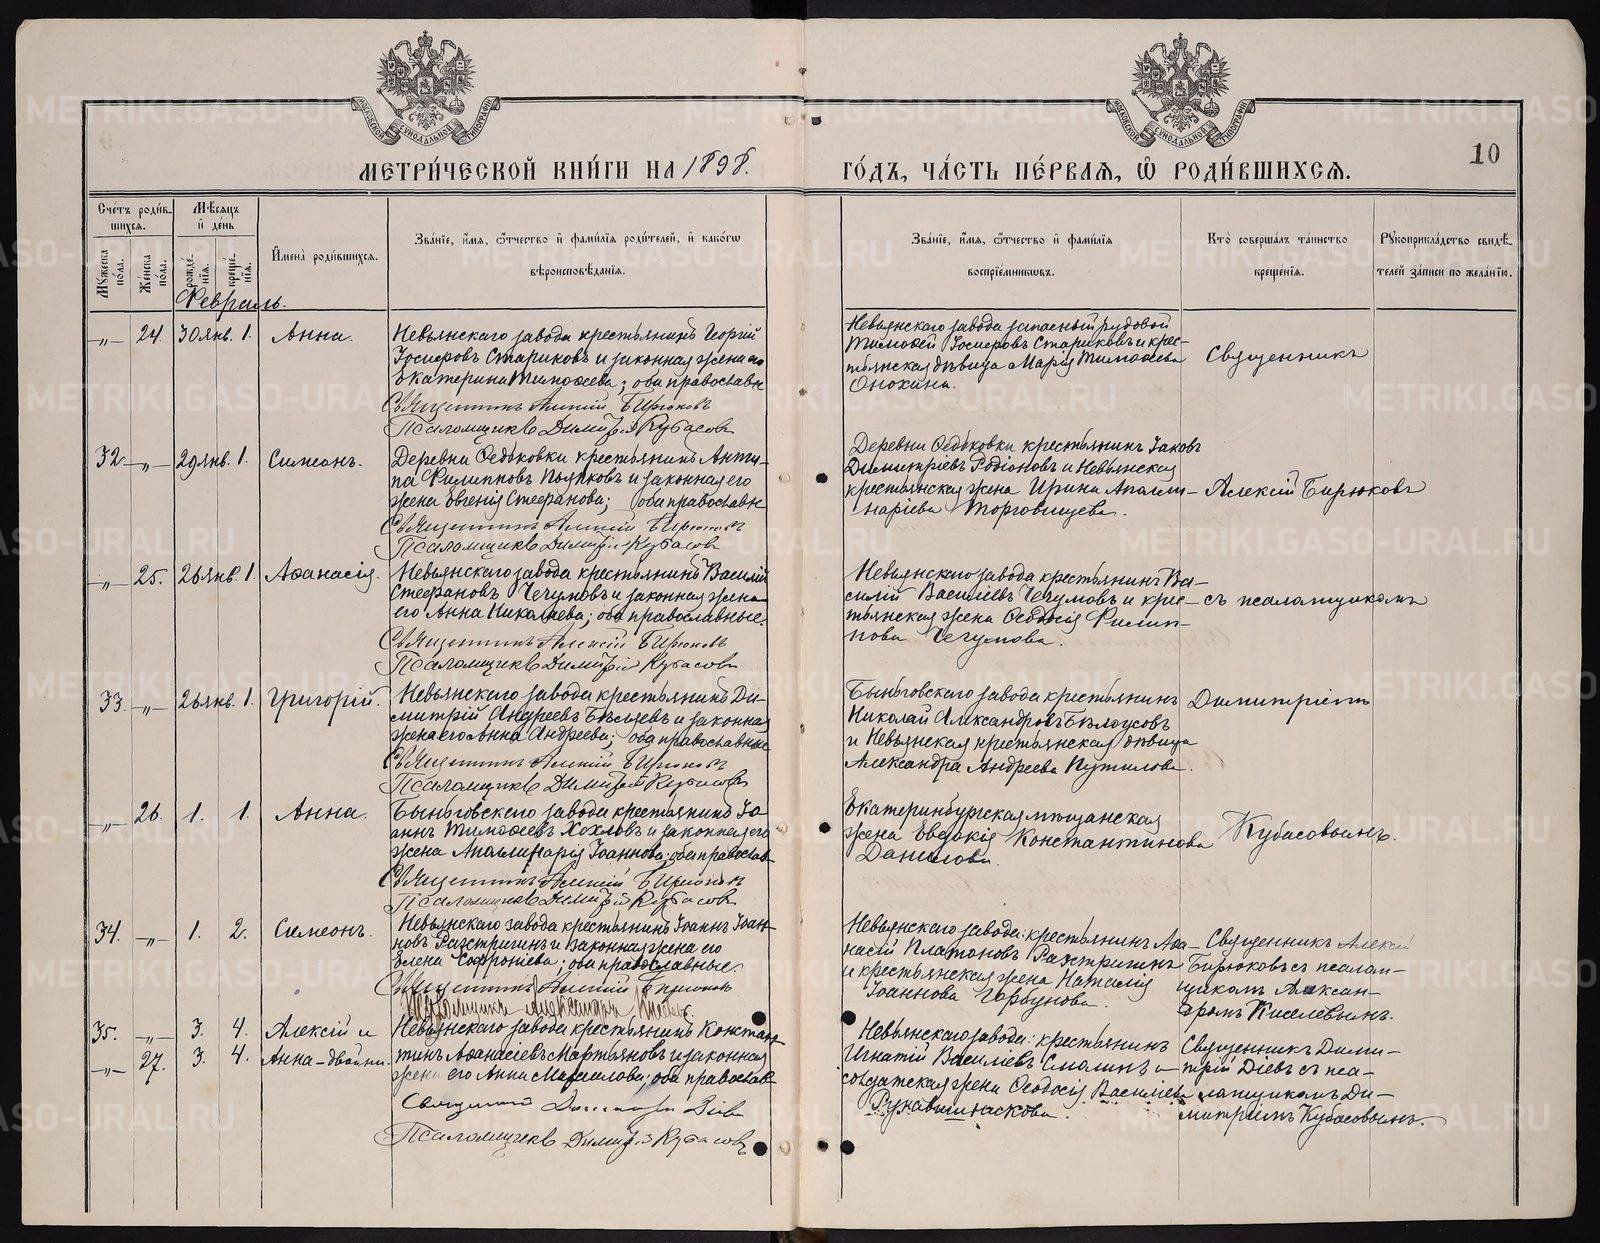 МЕТРИ́ЧЕСКОЙ КНИ́ГИ НА 1898.
ГО́ДЪ, ЧА́СТЬ ПЕ́РВАѦ, Ѽ РОДИ́ВШИХСѦ.
10
Сче́тъ роди́в-
шихсѧ.
Мꙋ́жеска по́ла.
Же́нска по́ла.
Мѣ́сѧцъ и҆ де́нь
рожде́-нїѧ.
креще́-нїѧ.
И҆мена̀ роди́вшихсѧ.
Зва́нїе, и҆́мѧ, ѻ҆́тчество и҆ фами́лїѧ роди́телей, и҆ како́гѡ
вѣроисповѣ́данїѧ.
Зва́нїе, и҆́мѧ, ѻ҆́тчество и҆ фами́лїѧ
воспрїе́мникѡвъ.
Кто̀ соверша́лъ та́инство
креще́нїѧ.
Рꙋкоприкла́дство свидѣ́-
телей за́писи по жела́нїю.
Февраль.
„ 24. 30 янв. 1. Анна.
Невьянскаго завода крестьянинъ Георгій
Іосифовъ Стариковъ и законная жена его
Екатерина Тимоѳеева; оба православн
Священникъ Алексій Бирюковъ
Псаломщикъ Димитрій Кубасовъ
Невьянскаго завода запасный рядовой
Тимоѳей Іосифовъ Стариковъ и крес-
тьянская дѣвица Марія Тимоѳеева
Онохина.
Священникъ
32. „ 29 янв. 1. Симеонъ.
Деревни Ѳедьковки крестьянинъ Анти-
па Филипповъ Пьянковъ и законная его
жена Евгенія Стефанова; оба православн
Священникъ Алексій Бирюковъ
Псаломщикъ Димитрій Кубасовъ
Деревни Ѳедьковки крестьянинъ Іаковъ
Димитріевъ Родіоновъ и Невьянская
крестьянская жена Ирина Аполли-
наріева Торговищева.
Алексій Бирюковъ
„ 25. 26 янв. 1. Аѳанасія.
Невьянскаго завода крестьянинъ Василій
Стефановъ Чегумовъ и законная жена
его Анна Николаева; оба православные.
Священникъ Алексій Бирюковъ
Псаломщикъ Димитрій Кубасовъ
Невьянскаго завода крестьянинъ Ва-
силій Василіевъ Чегумовъ и крес-
тьянская жена Ѳеодосія Филип-
пова Чегумова.
съ псаломщикомъ
33. „ 26 янв. 1. Григорій.
Невьянскаго завода крестьянинъ Ди-
митрій Андреевъ и законная
жена его Анна Андреева; оба православные
Священникъ Алексій Бирюковъ
Псаломщикъ Димитрій Кубасовъ
Быньговскаго завода крестьянинъ
Николай Александровъ Бѣлоусовъ
и Невьянская крестьянская дѣвица
Александра Андреева Путилова.
Димитріемъ
„ 26. 1. 1. Анна.
Быньговскаго завода крестьянинъ Іо-
аннъ Тимоѳеевъ Хохловъ и законная его
жена Аполлинарія Іоаннова; оба православ-
Священникъ Алексій Бирюковъ
Псаломщикъ Димитрій Кубасовъ
Екатеринбургская мѣщанская
жена Евдокія Константинова
Данилова.
Кубасовымъ.
34. „ 1. 2. Симеонъ.
Невьянскаго завода крестьянинъ Іоаннъ Іоан-
новъ Разстригинъ и законная жена его
Елена Софроніева; оба православные.
Священникъ Алексій Бирюковъ
Псаломщикъ Александръ Киселевъ.
Невьянскаго завода: крестьянинъ Аѳа-
насій Платоновъ Разстригинъ
и крестьянская жена Наталія
Іоаннова Горбунова.
Священникъ Алексій
Бирюковъ съ псалом-
щикомъ Алексан-
дромъ Киселевымъ.
35. „ 3. 4. Алексій и
„ 27. 3. 4. Анна - двойни.
Невьянскаго завода крестьянинъ Констан-
тинъ Аѳанасіевъ Мартьяновъ и законная
жена его Анна Маркелова; оба православ-
Священникъ Димитрій Діевъ
Псаломщикъ Димитрій Кубасовъ
Невьянскаго завода: крестьянинъ
Игнатій Василіевъ Смолинъ и
солдатская жена Ѳеодосія Василіева
Рукавишникова.
Священникъ Дими-
трій Діевъ съ пса-
ломщикомъ Ди-
митріемъ Кубасовымъ.
METRIKI.GASO-URAL.RU